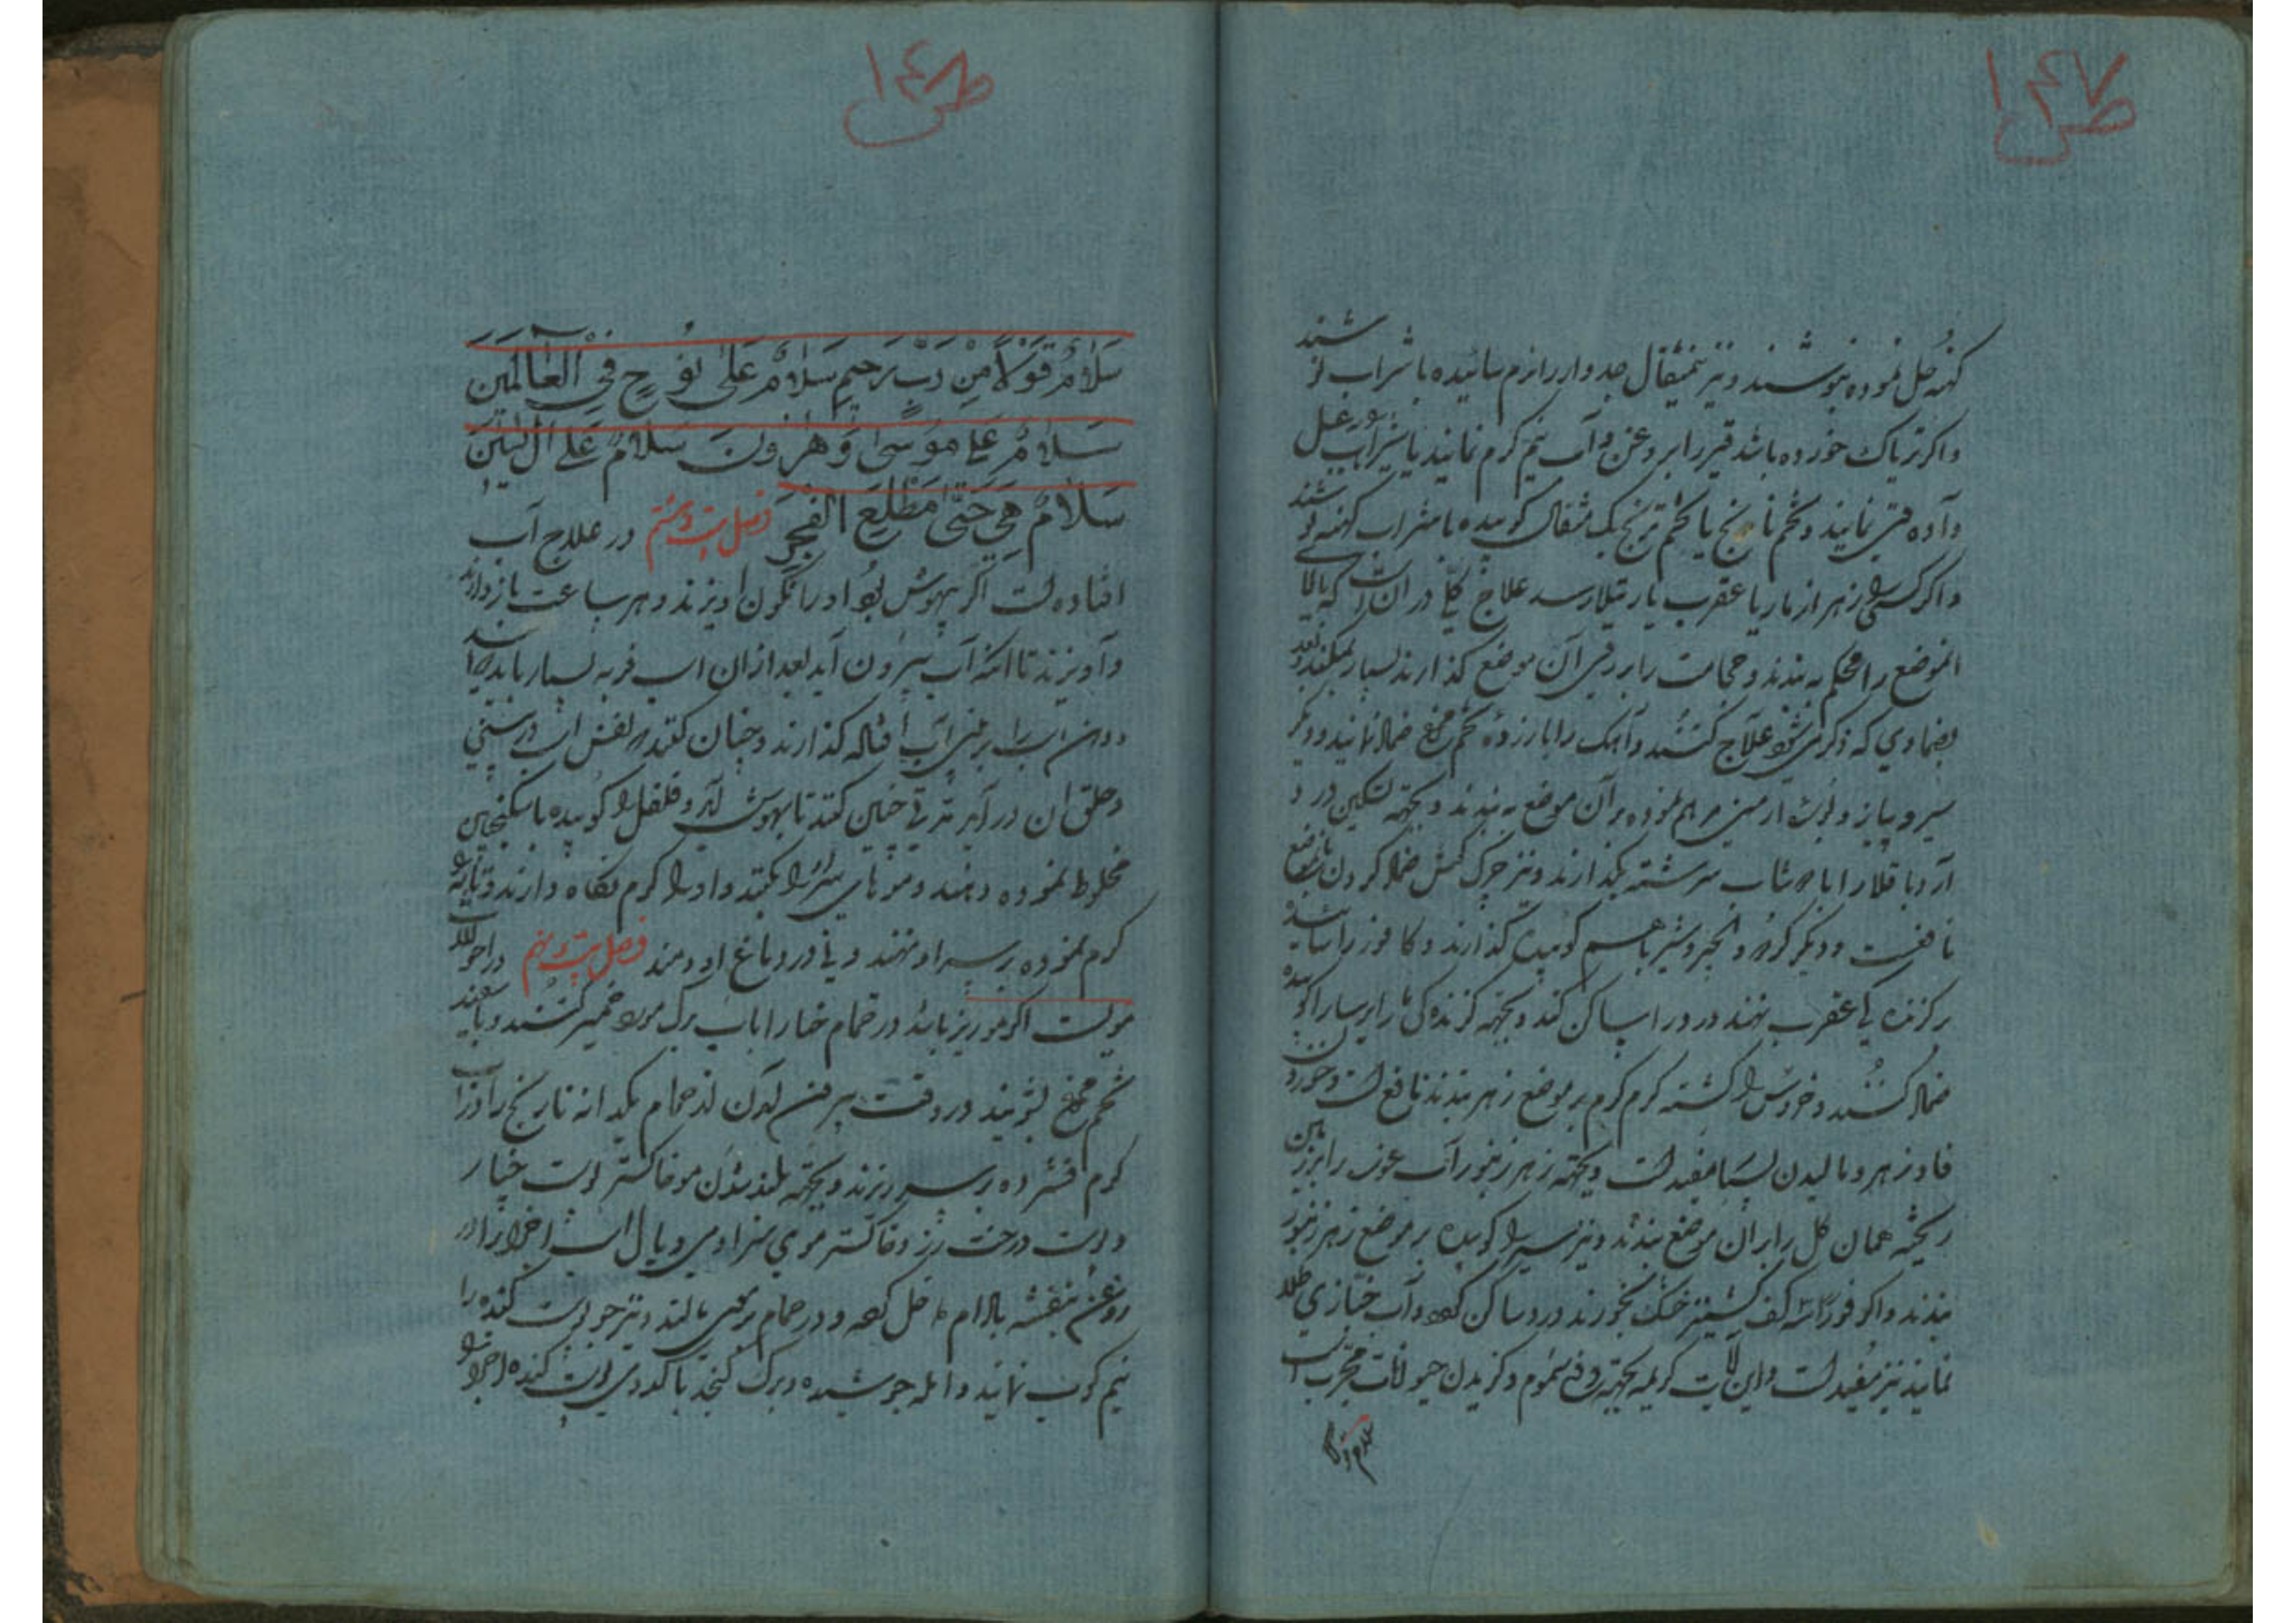 ص ۱۴۷
کهنه حل نموده بنوشند و نیز نیمثقال جدوار را نرم سائیده با شراب نوشند
و اکر تریاک خورده باشد قیر را بروغن و آب نیم کرم نمایند یا شراب عسل
داده قی نمایند و تخم نارنج یا تخم ترنج یک مثقال کوبیده با شراب کهنه نوشند
و اکر کسی را زهر از مار یا عقرب یا رتیلا رسد علاج کلی در ان است که بالا
انموضع را محکم به بندند و حجامت را بر روی آن موضع کذارند بسیار بمکند و بعد
بضمادی که ذکر می شود علاج کنند و آهک را با زرده تخم مرغ ضماد نمایند و دیکر
سیر و پیاز و بوره ارمنی مرهم نموده بر آن موضع به بندند و بجهته تسکین درد
آرد باقلا را با شراب سرشته بکذارند و نیز چرک کفش ضماد کردن بانموضع
نافعست و دیکر کردو و انجیر و سیر با هم کوبیده کذارند و کافور را سائیده
بر کزنده کی عقرب نهند درد را ساکن کند و بجهته کزنده کی مار را کوبیده
ضماد کنند و خروس را کشته کرم کرم بر موضع زهر بندند نافع است و خوردن
فادزهر و مالیدن بسیار مفید است و بجهته زهر زنبور آب غوره را بر زمین
ریخته همان کل را بر آن موضع بندند و نیز سیر را کوبیده بر موضع زهر زنبور
بندند و اکر فورا سه کف کشنیز خشک بخورند درد ساکن کند و آب خبازی طلا
نمایند نیز مفید است و این آیات کریمه بجهته دفع سموم و کزیدن حیوانات مجرب است
سلام قولا
ص ۱۴۸
سَلَامٌ قَوْلًا مِنْ رَبٍّ رَحِیمٍ سَلَامٌ عَلَی نُوحٍ فِی الْعَالَمِینَ
سَلَامٌ عَلَی مُوسَی وَ هَارُونَ سَلَامٌ عَلَی آلِ یاسِینَ
سَلَامٌ هِیَ حَتَّی مَطْلَعِ الْفَجْرِ فصل بیست و هشتم در علاج آب
افتاده است اکر بیهوش بود او را نکون اویزند و هر ساعت باز دارند
و آویزند تا انکه آب بیرون آید بعد از ان اسب فربه بسیار باید
و دهن اسب را بر بینی آب افتاده کذارند و چنان کنند که نفس اسب در بینی
و حلق ان در آید مدتی چنین کنند تا بهوش آید و فلفل را کوبیده با سکنجبین
مخلوط نموده دهند و موهای سر او را بکنند و او را کرم نکاه دارند و
کرم نموده بر سر او نهند و در دماغ او دمند فصل بیست و نهم در احوالات
مویست اکر مو ریز باشد در حمام حنا را با آب برک مورد خمیر کنند و با سفیده
تخم مرغ بشویند و در وقت بیرون آمدن از حمام یکدانه نارنج را در آب
کرم فشرده بر سر ریزند و بجهته بلند شدن مو خاکستر پوست خیار
و پوست درخت رز و خاکستر موی سر ادمی و یال اسب اجزا را در
روغن بنفشه بادام داخل کرده و در حمام بر موی مالند و نیز جو پوست کنده را
نیم کوب نمایند و امله جوشیده و برک کنجد با کدوی پوست کنده اجزا را